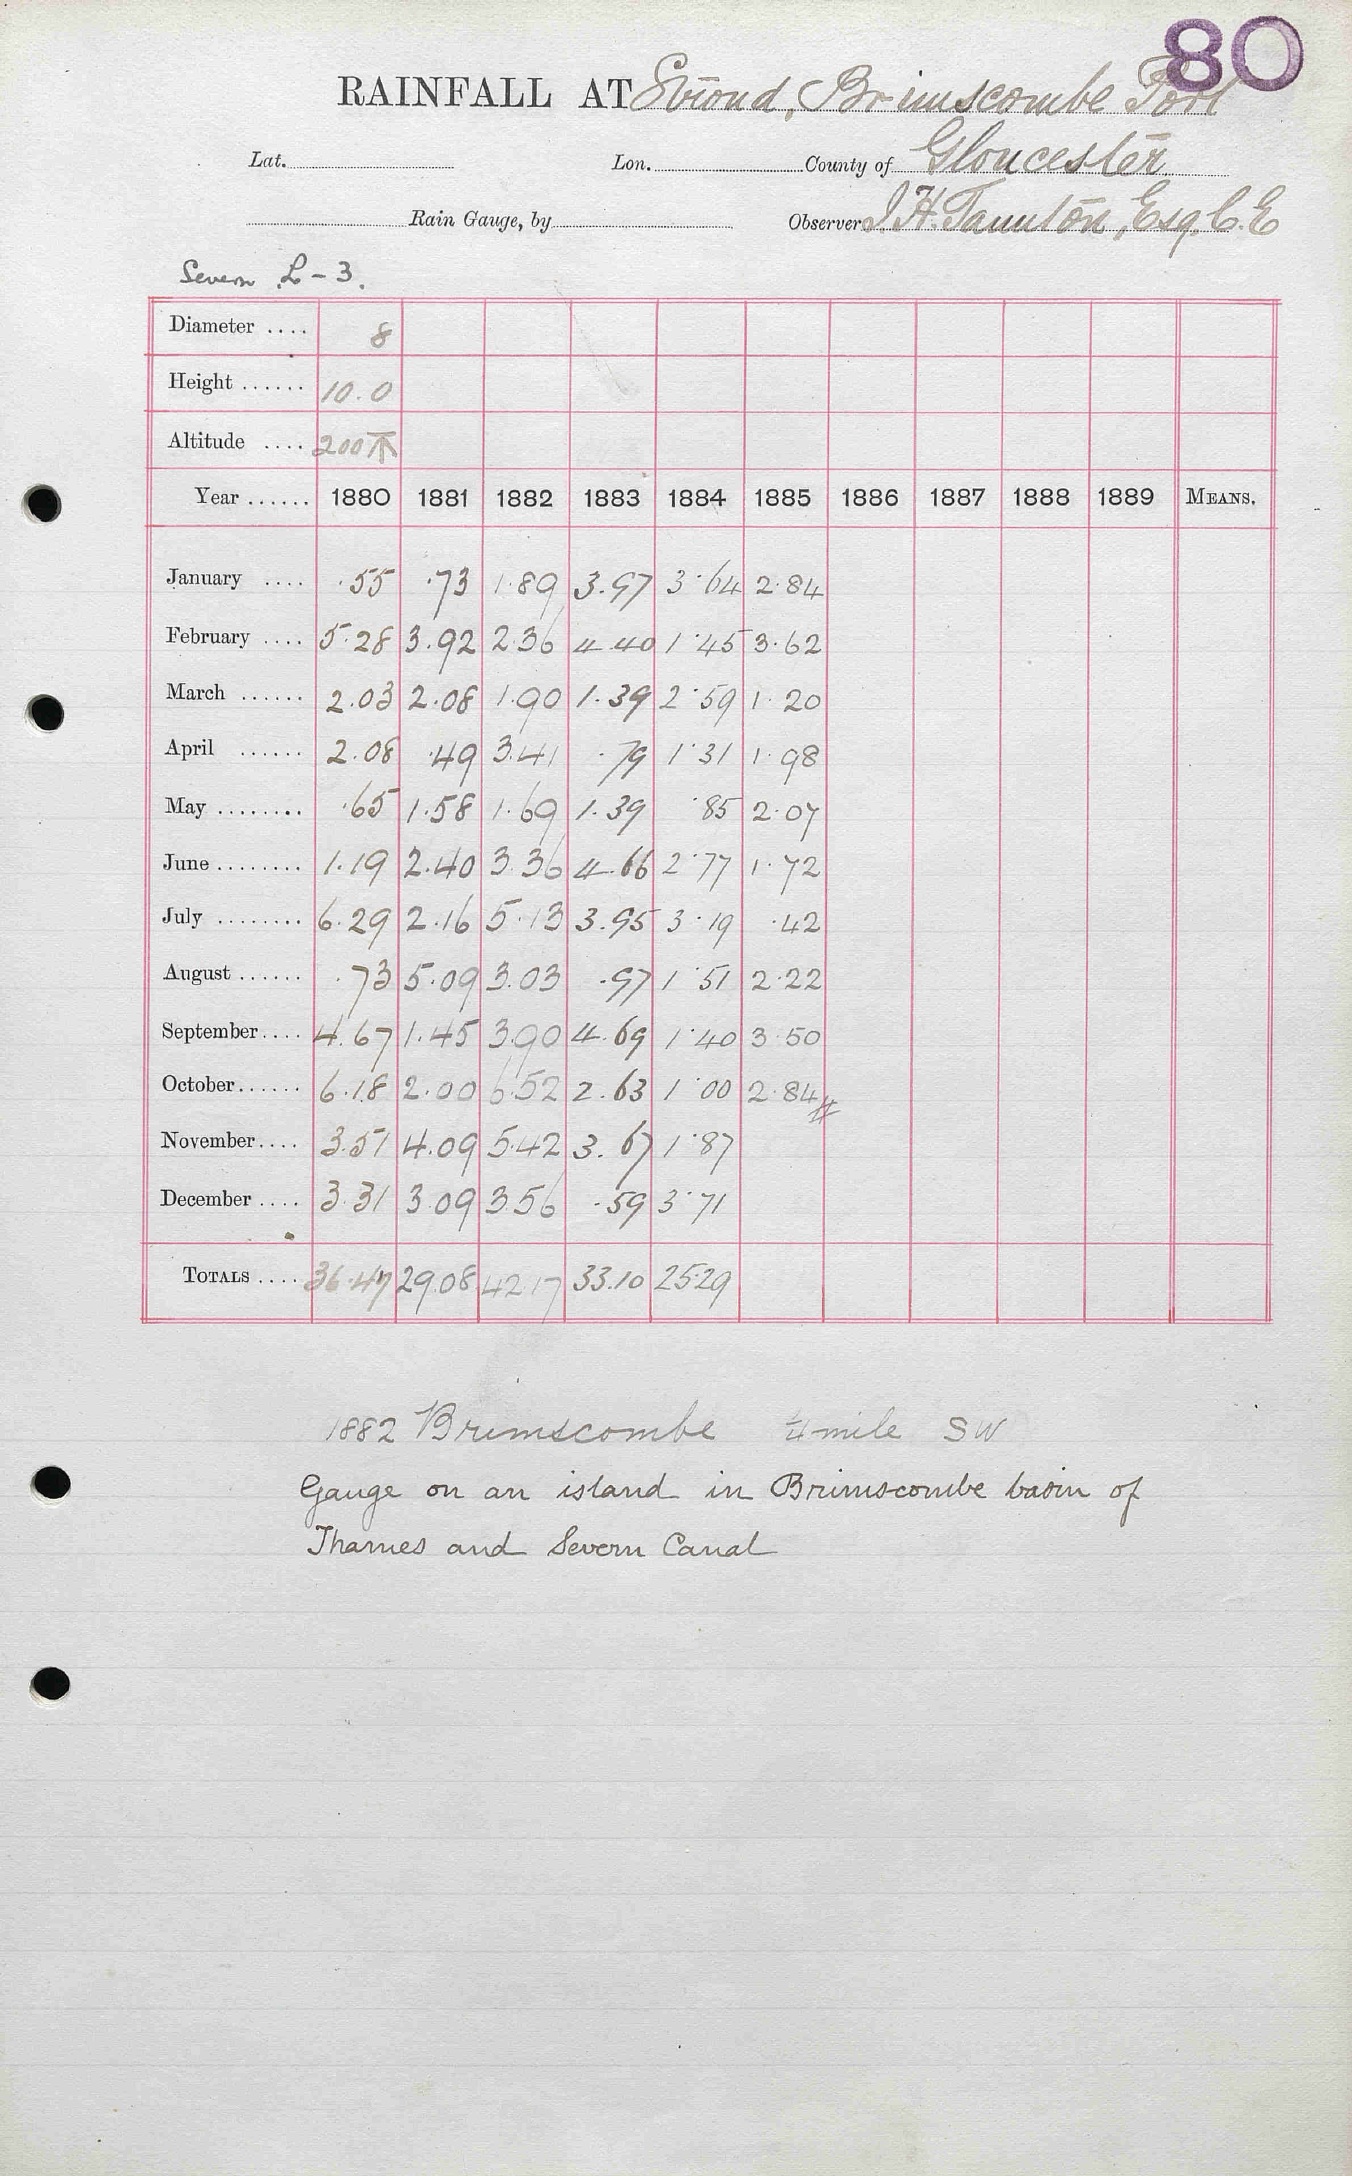 80
RAINFALL AT Stroud, Brimscombe Port
Lat. Lon. County of Gloucester
Rain Gauge, by Observer J. H. Taunton, Esq. C.E
Severn L-3.
Diameter .... 8
Height ...... 10.0
Altitude .... 200
Year ...... 1880 1881 1882 1883 1884 1885 1886 1887 1888 1889 MEANS.
January .... .55 .73 1.89 3.97 3.64 2.84
February .... 5.28 3.92 2.36 4.40 1.45 3.62
March ...... 2.03 2.08 1.90 1.39 2.59 1.20
April ...... 2.08 .49 3.41 .79 1.31 1.98
May ........ .65 1.58 1.69 1.39 .85 2.07
June ........ 1.19 2.40 3.36 4.66 2.77 1.72
July ........ 6.29 2.16 5.13 3.95 3.19 .42
August ...... .73 5.09 3.03 .97 1.51 2.22
September .... 4.67 1.45 3.90 4.69 1.40 3.50
October ...... 6.18 2.00 6.52 2.63 1.00 2.84
November .... 3.51 4.09 5.42 3.67 1.87
December .... 3.31 3.09 3.56 .59 3.71
TOTALS .... 36.47 29.08 42.17 33.10 25.29
1882 Brimscombe ¼ mile SW
Gauge on an island in Brimscombe basin of
Thames and Severn Canal